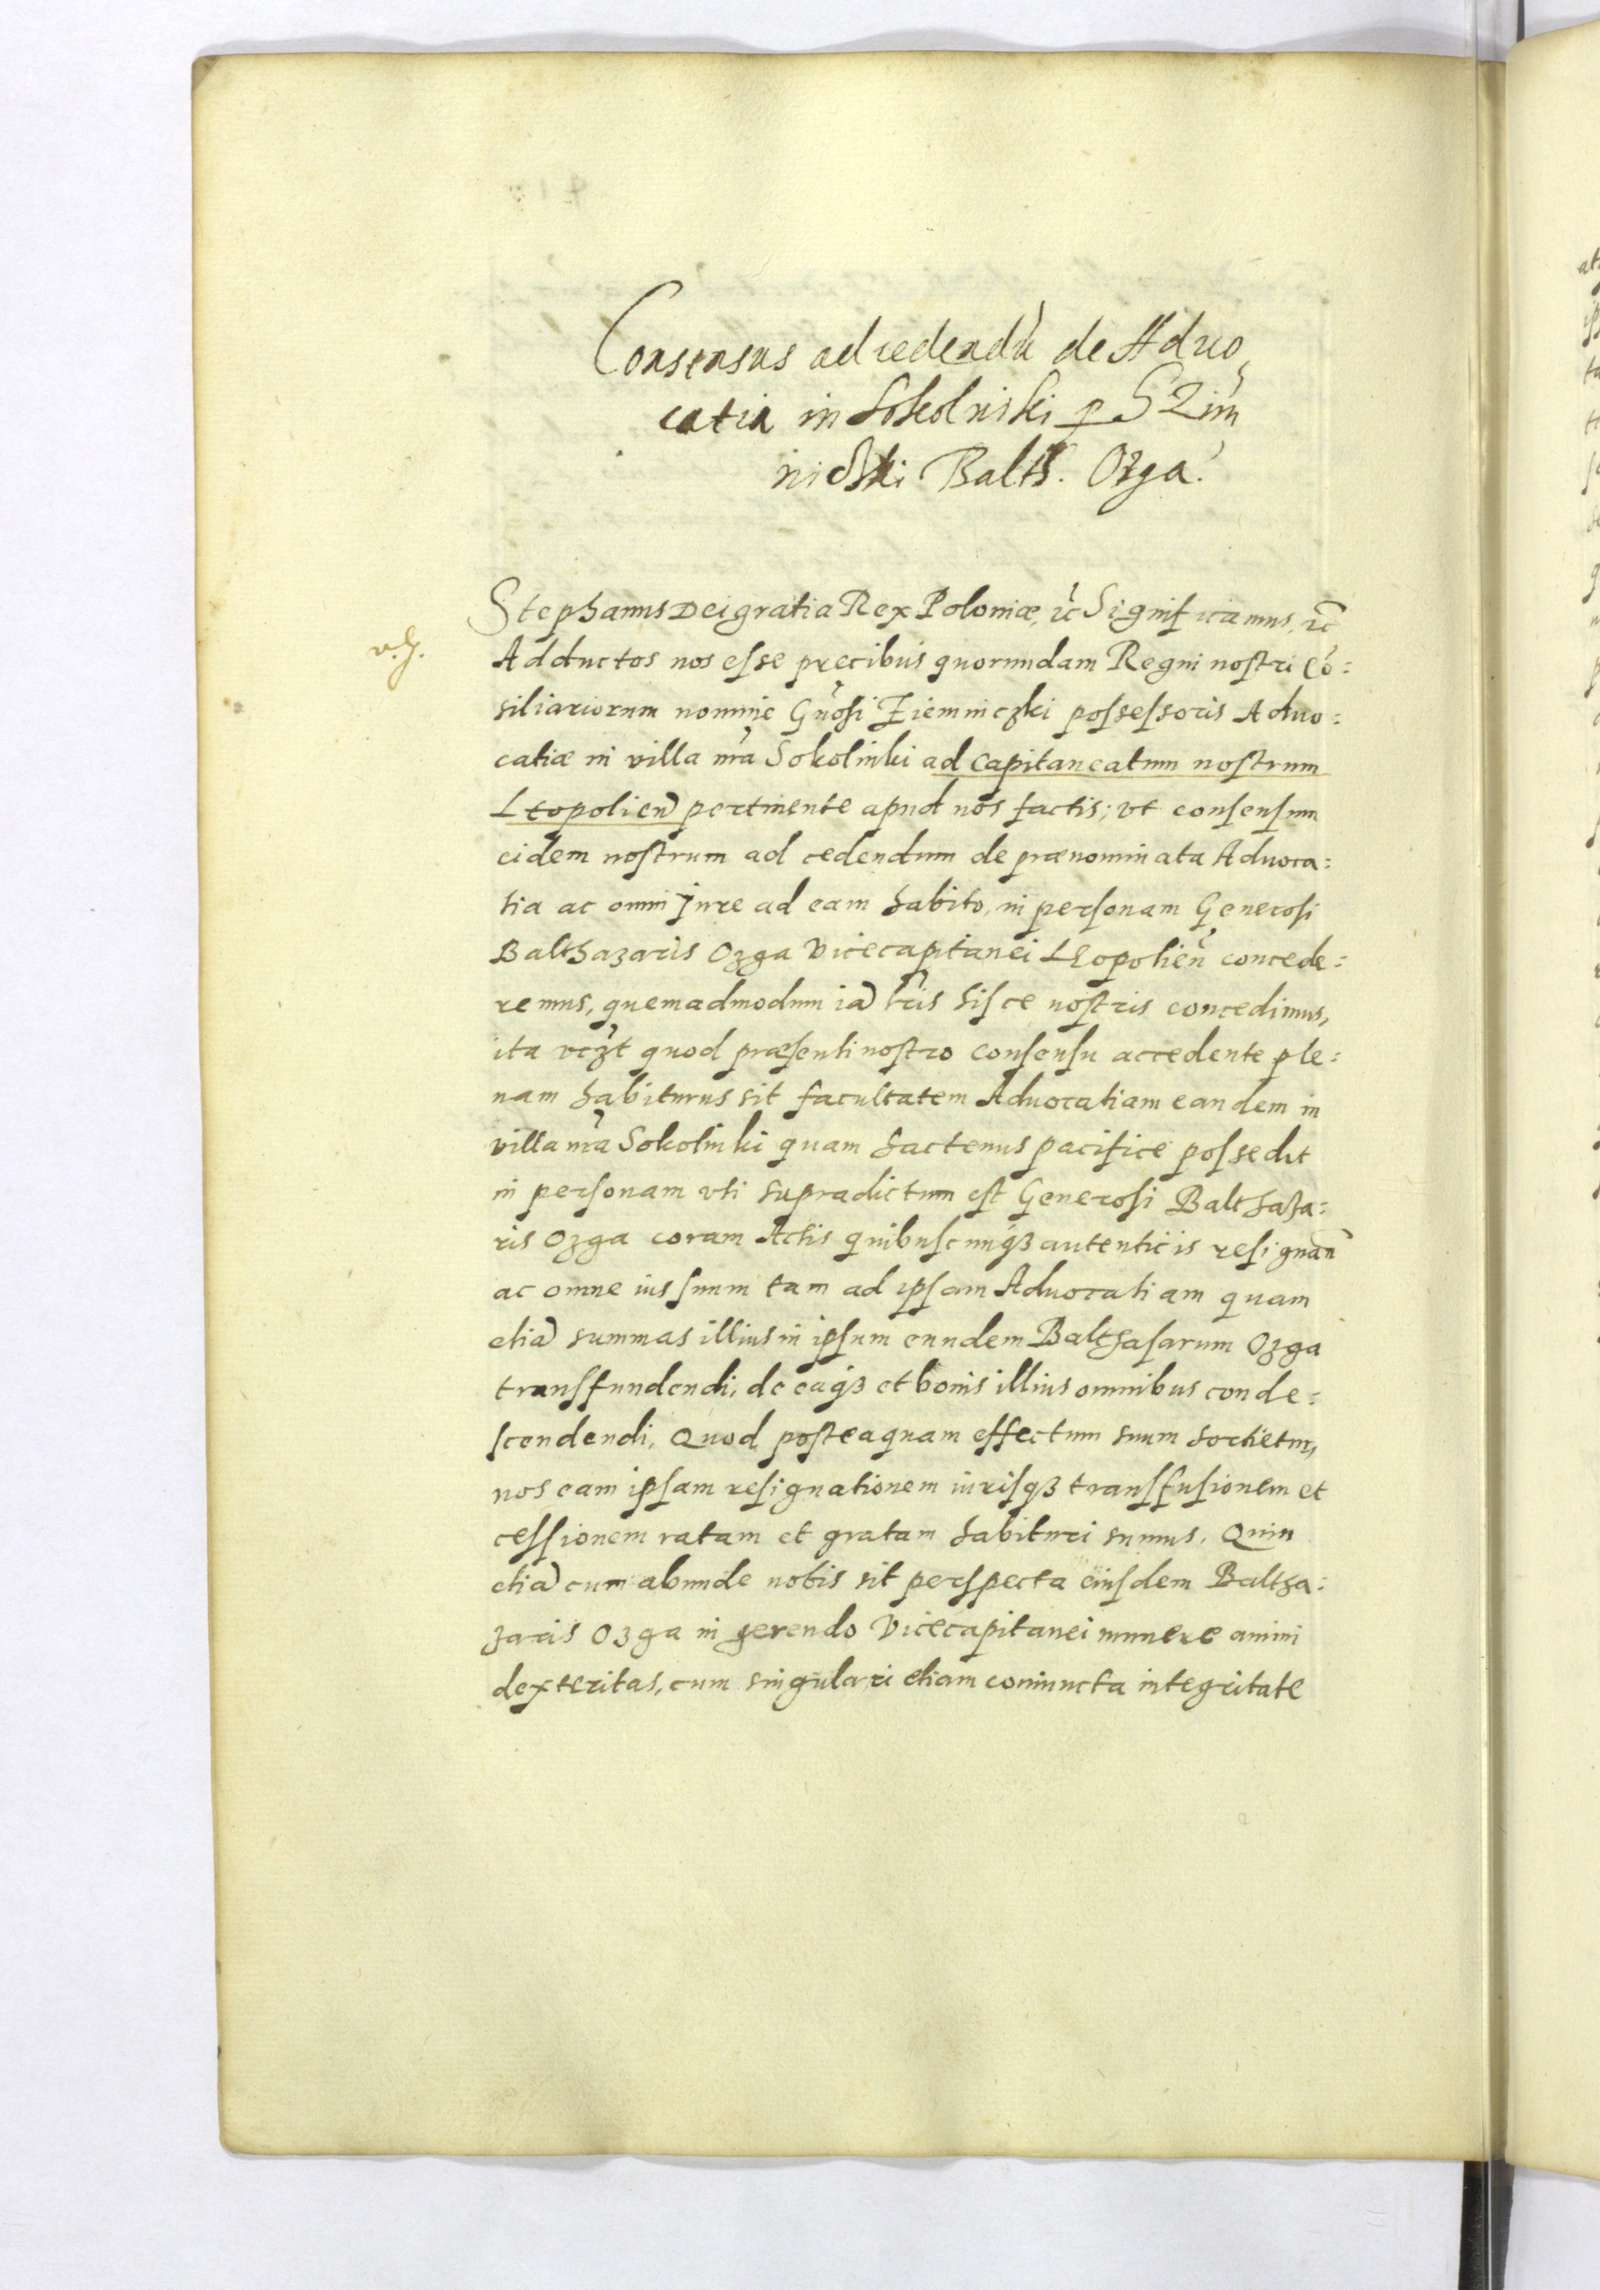 Consensus ad cedendũ de Aduo
catia in Sokolniki p
Balts. Ozga.
Stephanus Dei gratia Rex Poloniæ, &c Significamus, &c
v.
Adductos nos esse precibus quorundam Regni nostri Cõ:
siliariorum nomine Gñosi Ziemniczki possessoris Aduo:
catiæ in villa nrã Sokolinki ad Capitaneatum nostrum
Leopolien pertinente apud nos factis; vt consensum
eidem nostrum ad cedendum de prænominata Aduoca:
tia ac omni jure ad eam habito, in personam Generosi
Balthazaris Ozga Vicecapitanei Leopolien̄ concede:
remus, quemadmodum iã lr̃is hisce nostris concedimus,
ita vczt quod præsenti nostro consensu accedente ple:
nam habiturus sit facultatem Aduocatiam eandem in
villa nrã Sokolinki quam hactenus pacifice possedit
in personam vti supradictum est Generosi Balthaza:
ris Ozga coram Actis quibuscunqȝ autenticis resignan̄
ac omne ius suum tam ad ipsam Aduocatiam quam
etiã summas illius in ipsum eundem Balthasarum Ozga
transfundendi, de eaqȝ et bonis illius omnibus conde:
scendendi. Quod posteaquam effectum suum sortietur,
nos eam ipsam resignationem iurisqȝ transfusionem et
cessionem ratam et gratam habituri sumus. Quin
etiã cum abunde nobis sit perspecta eiusdem Baltha:
zaris Ozga in gerendo Vicecapitanei munere animi
dexteritas, cum singulari etiam coniuncta integritate